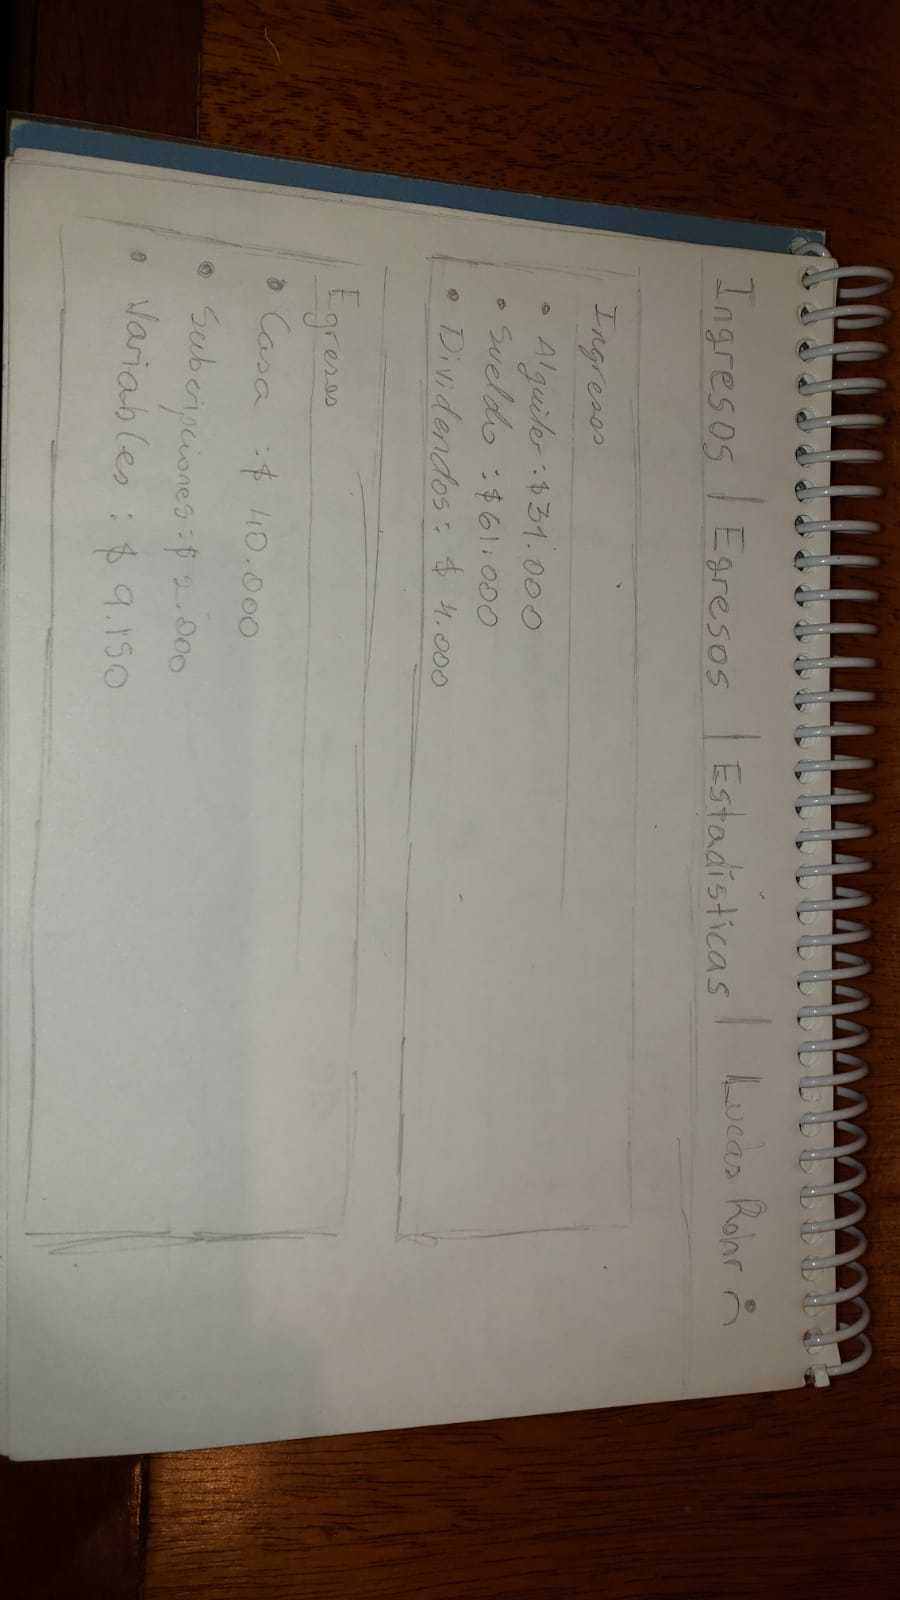 Ingresos | Egresos | Estadísticas | Lucas Rohr
Ingresos
• Alquiler: $31.000
• Sueldo: $61.000
• Dividendos: $ 4.000
Egresos
• Casa : $ 40.000
• Subcripciones: $ 2.000
• Variables : $ 9.150